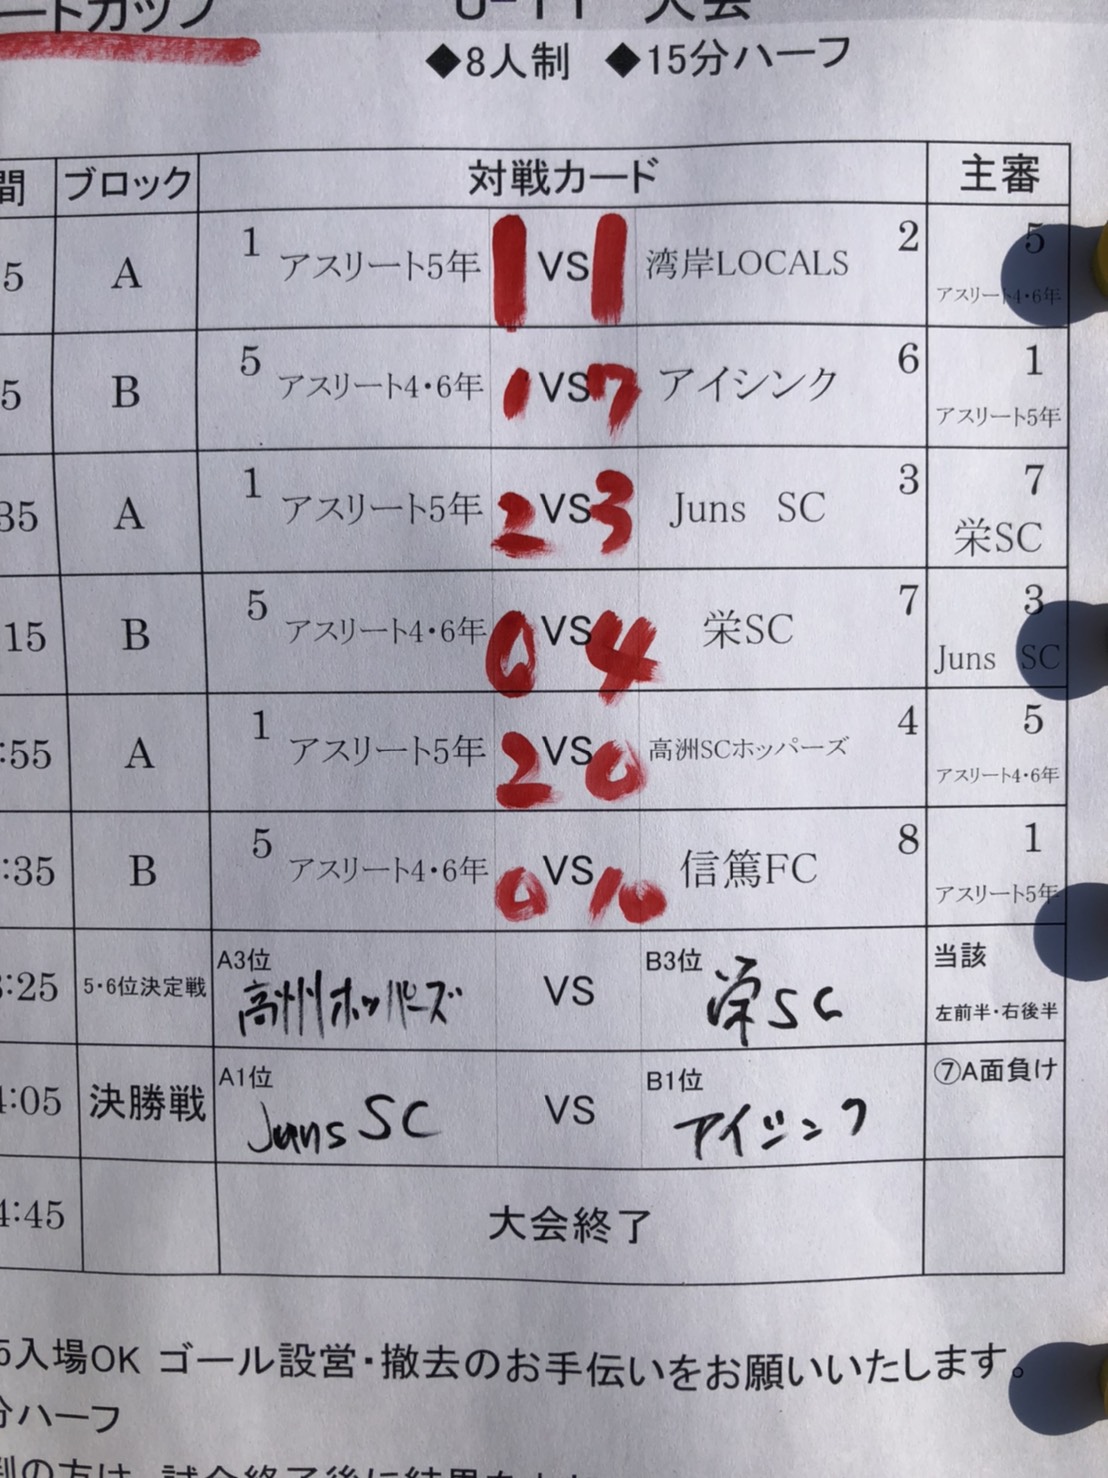 ートカップ U-11 大会
◆8人制 ◆15分ハーフ
間 ブロック 対戦カード 主審
5 A 1 アスリート5年 1 VS 1 湾岸LOCALS 2 5 アスリート4・6年
5 B 5 アスリート4・6年 1 VS 7 アイシンク 6 1 アスリート5年
35 A 1 アスリート5年 2 VS 3 Juns SC 3 7 栄SC
15 B 5 アスリート4・6年 0 VS 4 栄SC 7 3 Juns SC
:55 A 1 アスリート5年 2 VS 0 高洲SCホッパーズ 4 5 アスリート4・6年
:35 B 5 アスリート4・6年 0 VS 10 信篤FC 8 1 アスリート5年
3:25 5・6位決定戦 A3位 高州ホッパーズ VS B3位 栄SC 当該 左前半・右後半
4:05 決勝戦 A1位 Juns SC VS B1位 アイシンク ⑦A面負け
4:45 大会終了
5入場OK ゴール設営・撤去のお手伝いをお願いいたします。
分ハーフ